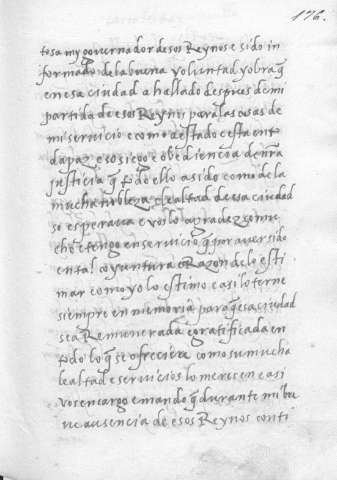 176.
tosa my governador desos Reynos e sido in
formado de la buena voluntad y obra q̄
en esa ciudad a hallado despues de mi
partida de esos Reynos para las cosas de
mi servicio e como a estado e esta en to
da paz e sosiego e obediencia de nr̄a
justicia q̄ todo ello a sido como de la
mucha nobleza e lealtad de esa ciudad
so esperava e vos lo agradezco mu
cho e tengo en servicio q̄ por aver sido
en tal coyuntura e Razon de lo esti
mar como yo lo estimo e asi lo terne
siempre en memoria para q̄ esa ciudad
sea Remunerada e gratificada en
todo lo q̄ se ofreciere como su mucha
lealtad e servicios lo merescen e asi
vos encargo e mando q̄ durante mi bre
ve ausencia de esos Reynos conti